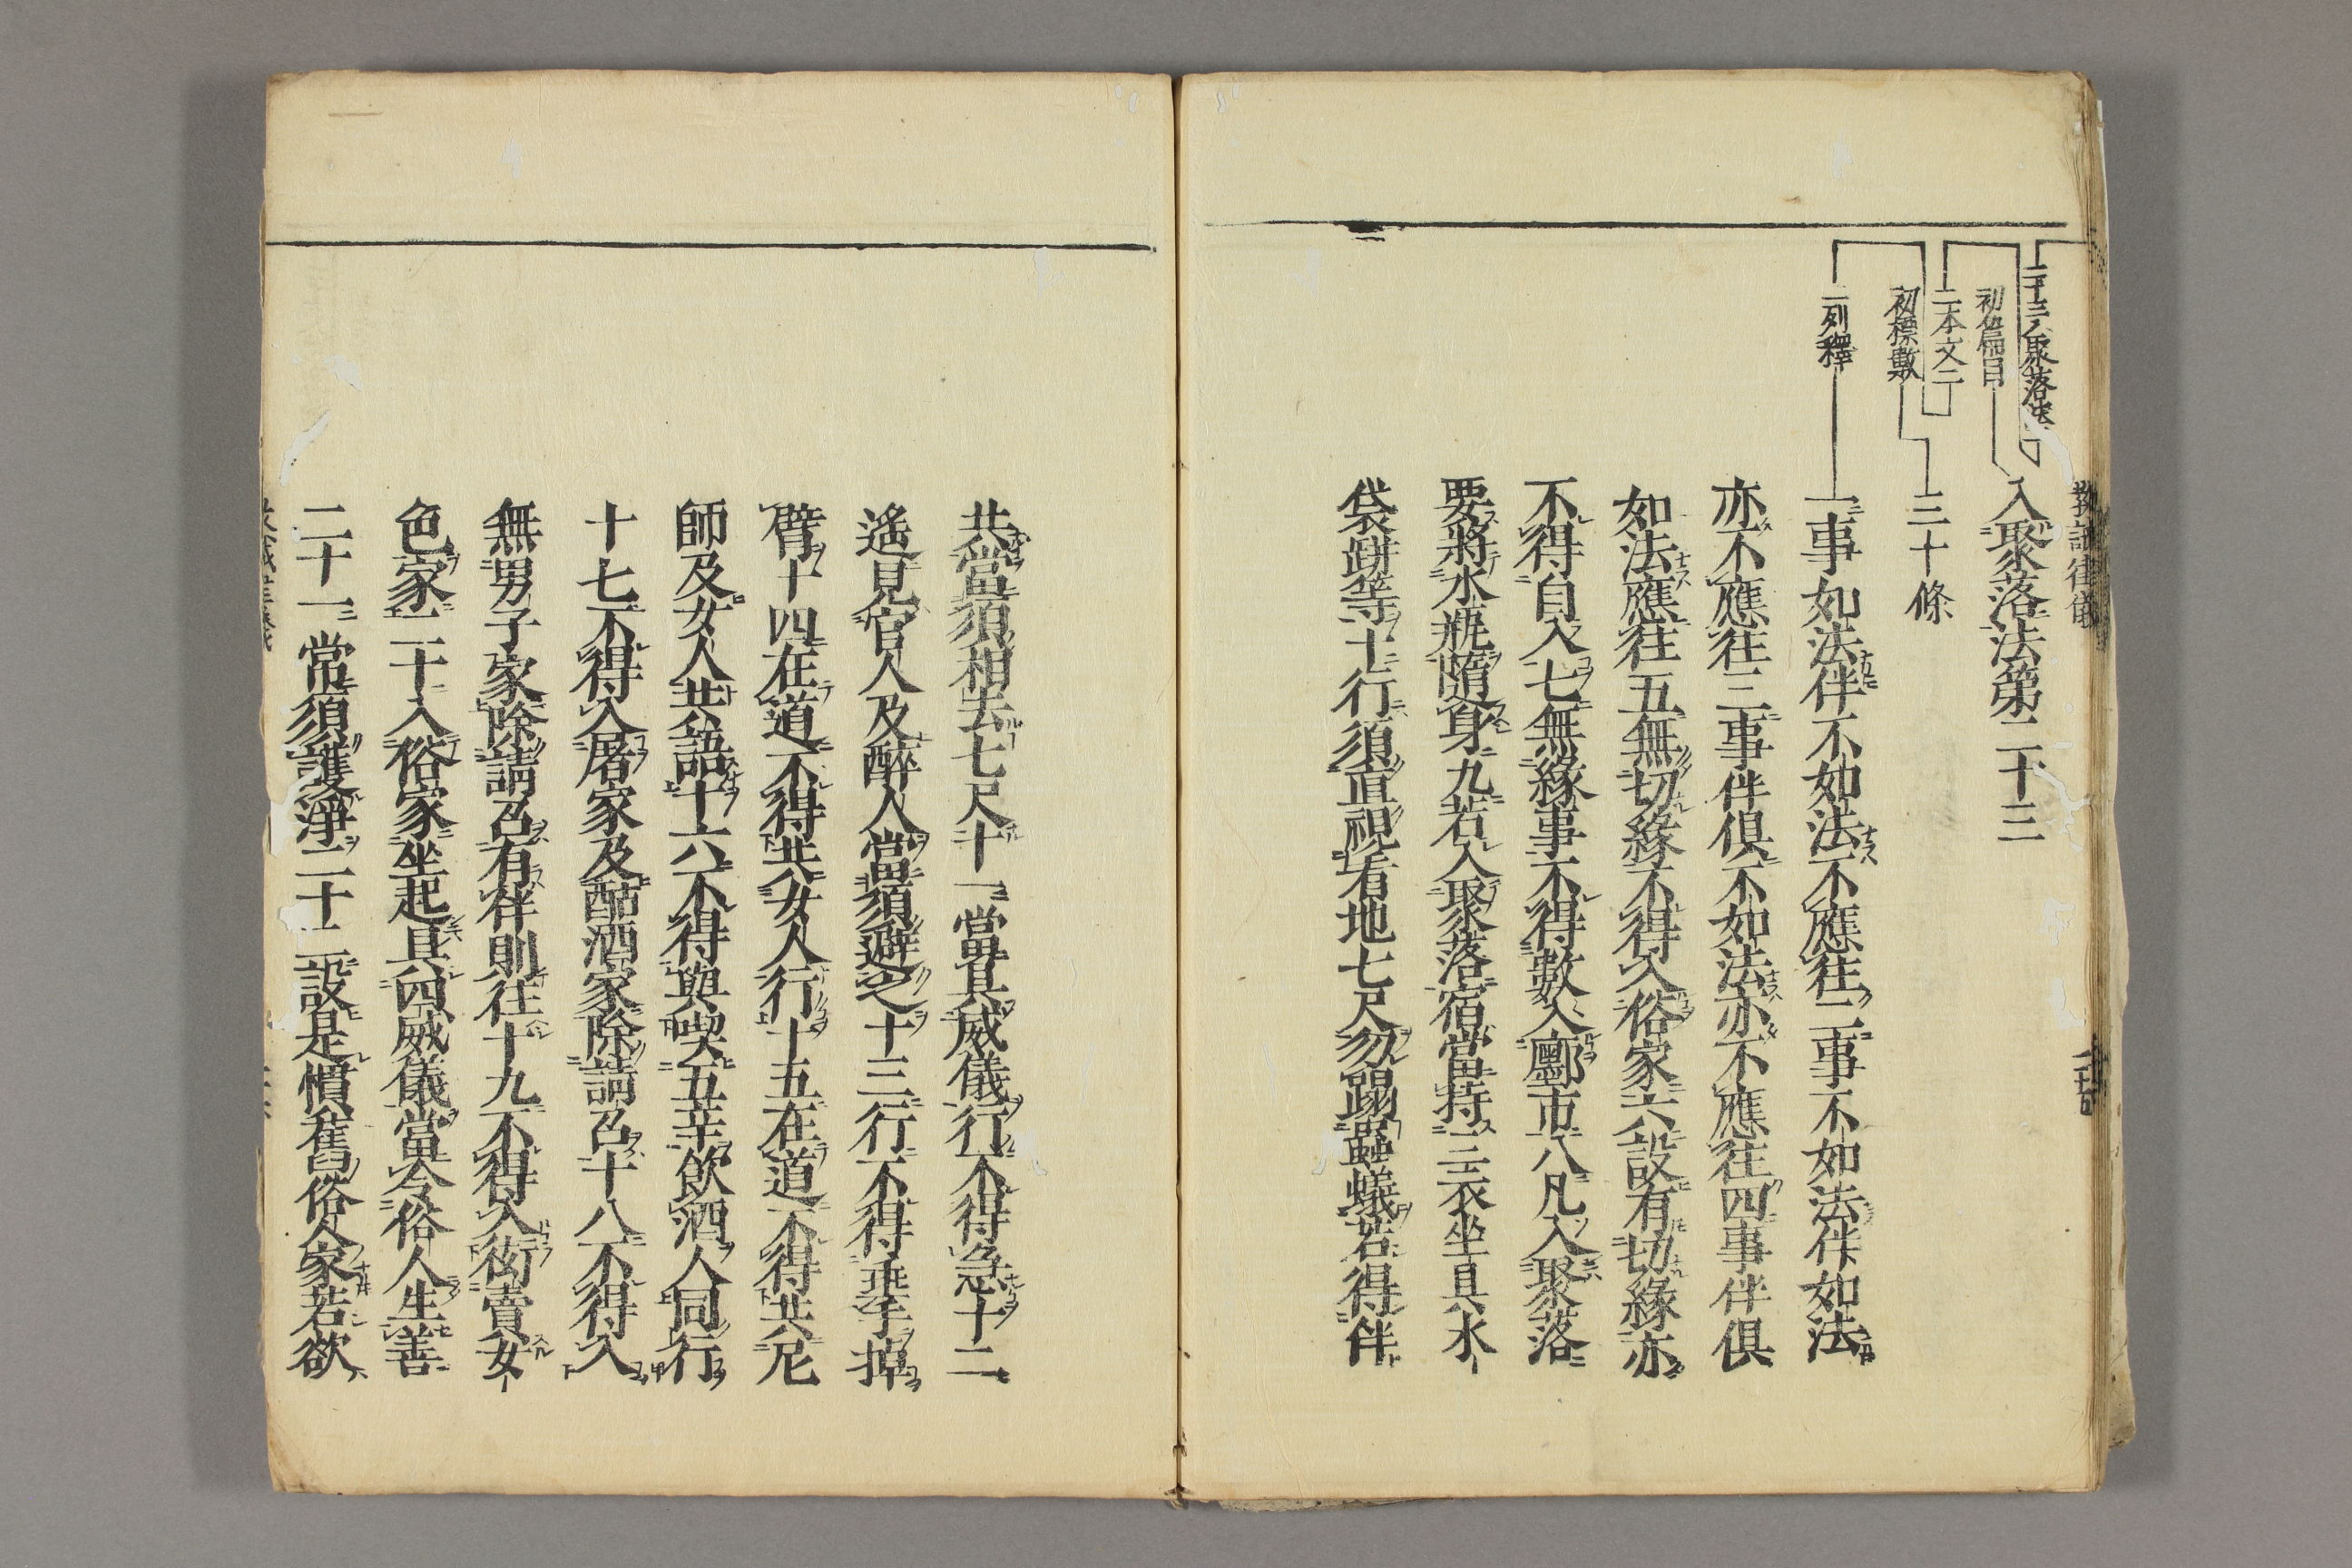 教誡律儀
二十三入聚落法二
初篇目
二本文二
初標數
二列釋
入聚落法第二十三
三十條
一事如法伴不如法不應往二事不如法伴如法
亦不應往三事伴俱不如法亦不應往四事伴俱
如法應往五無切緣不得入俗家六設有切緣亦
不得自入七無緣事不得數入鄽市八凡入聚落
要將水瓶隨身九若入聚落宿當持三衣坐具水
袋缾等十行須直視看地七尺勿蹋蟲蟻若得伴
共當須相去七尺十一當具威儀行不得急十二
遙見官人及醉人當須避之十三行不得垂手掉
臂十四在道不得共女人行十五在道不得共尼
師及女人共語十六不得與喫五辛飲酒人同行
十七不得入屠家及酤酒家除請召十八不得入
無男子家除請召有伴則往十九不得入衒賣女
色家二十入俗家坐起具四威儀當令俗人生善
二十一常須護淨二十二設是慣舊俗人家若欲